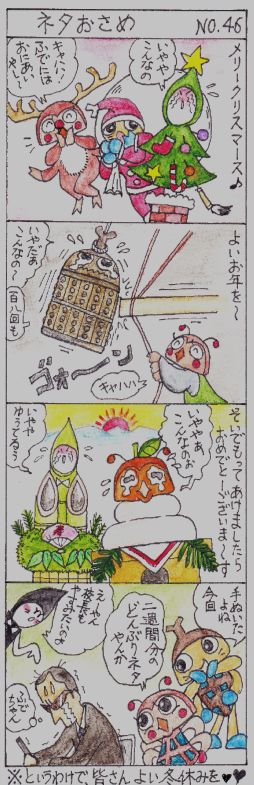 ネタおさめ
NO.46
メリークリスマース♪
いやや
こんなの
キャハハ!
ふでには
おにあい
や〜
よいお年を〜
いやだぁ
こんなの〜
百八回も
ゴォーーン
キャハハ
そいでもってあけましたら
おめでとーございま〜す
いややぁ
こんなのぉ
いやや
ゆうてるう
手ぬいた
よね
今回
二週間分の
どんぶりネタ
やんか
え〜ん
校長も
やすみたいのよ
ふで
ちゃん
※というわけで、皆さんよい冬休みを♥♥